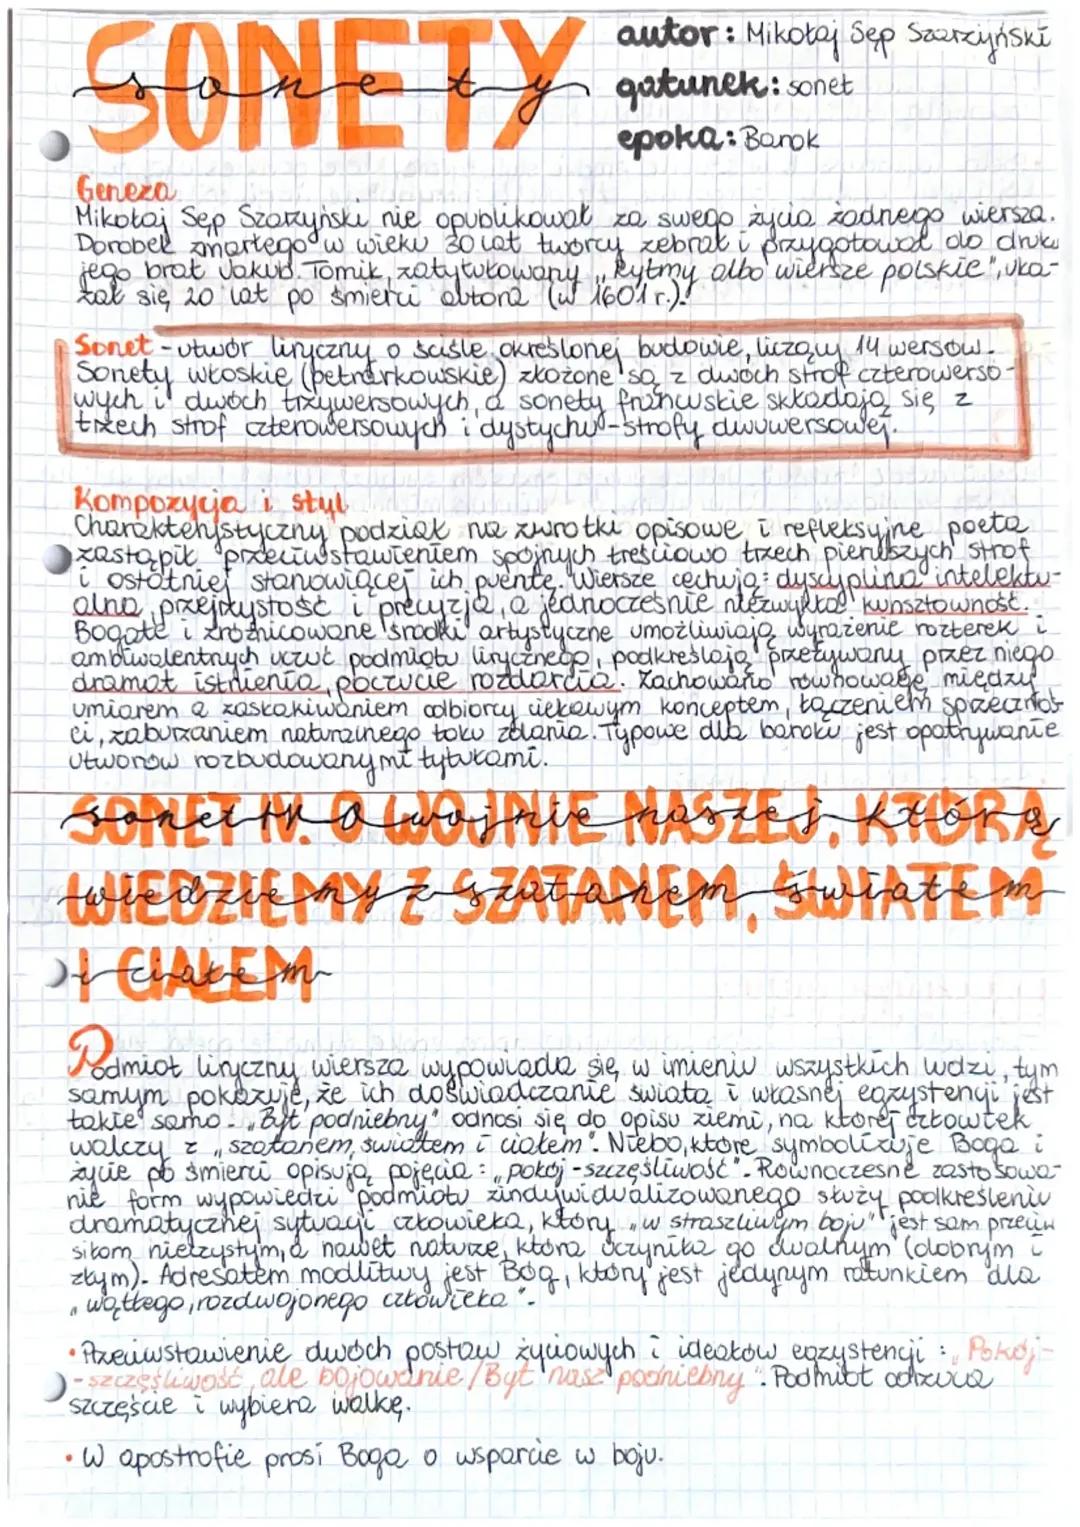 SONETY
sonety
autor: Mikołaj Sęp Szarzyński
gatunek: sonet
epoka: Barok
Geneza
Mikołaj Sęp Szarzyński nie opublikował za swego życia żadnego wiersza.
Dorobek zmarłego w wieku 30 lat twórcy zebrał i przygotował do druku
jego brat Jakub. Tomik, zatytułowany „Rytmy albo wiersze polskie", uka-
zał się 20 lat po śmierci autora (w 1601 r.).
Sonet - utwór liryczny o ściśle określonej budowie, liczący 14 wersów.
Sonety włoskie (petrarkowskie) złożone są z dwóch strof czterowerso-
wych i dwóch trzywersowych, a sonety francuskie składają się z
trzech strof czterowersowych i dystychu - strofy dwuwersowej.
Kompozycja i styl
Charakterystyczny podział na zwrotki opisowe i refleksyjne poeta
zastąpił przeciwstawieniem spójnych treściowo trzech pierwszych strof
i ostatniej stanowiącej ich puentę. Wiersze cechują: dyscyplina intelektu-
alna, przejrzystość i precyzja, a jednocześnie niezwykła kunsztowność.
Bogate i zróżnicowane środki artystyczne umożliwiają wyrażenie rozterek i
ambiwalentnych uczuć podmiotu lirycznego, podkreślają przeżywany przez niego
dramat istnienia, poczucie rozdarcia. Zachowano równowagę między
umiarem a zaskakiwaniem odbiorcy ciekawym konceptem, łączeniem sprzecznoś-
ci, zaburzaniem naturalnego toku zdania. Typowe dla baroku jest opatrywanie
utworów rozbudowanymi tytułami.
SONET IV. O WOJNIE NASZEJ, KTÓRĄ
WIEDZIEMY Z SZATANEM, ŚWIATEM
I CIAŁEM
Podmiot liryczny wiersza wypowiada się w imieniu wszystkich ludzi, tym
samym pokazuje, że ich doświadczanie świata i własnej egzystencji jest
takie samo. „Byt podniebny" odnosi się do opisu ziemi, na której człowiek
walczy z „szatanem, światem i ciałem". Niebo, które symbolizuje Boga i
życie po śmierci opisują pojęcia: „pokój - szczęśliwość". Równoczesne zastosowa-
nie form wypowiedzi podmiotu zindywidualizowanego służy podkreśleniu
dramatycznej sytuacji człowieka, który „w straszliwym boju" jest sam przeciw
siłom nieczystym, a nawet naturze, która uczyniła go dualnym (dobrym i
złym). Adresatem modlitwy jest Bóg, który jest jedynym ratunkiem dla
„wątłego, rozdwojonego człowieka".
• Przeciwstawienie dwóch postaw życiowych i ideałów egzystencji: „Pokój-
- szczęśliwość, ale bojowanie / Byt nasz podniebny". Podmiot odrzuca
szczęście i wybiera walkę.
• W apostrofie prosi Boga o wsparcie w boju.